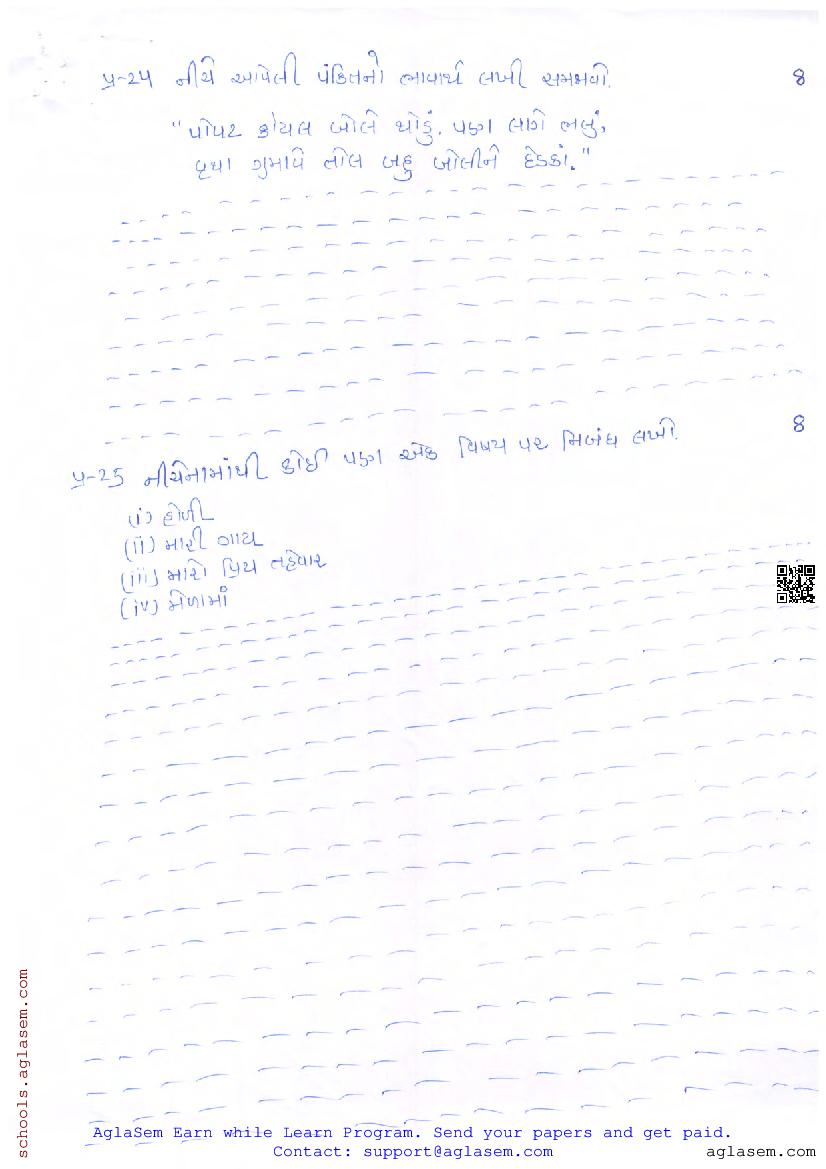 પ્ર-24 નીચે આપેલી પંકિતનો ભાવાર્થ લખી સમજાવો. 8
"પોપટ કોયલ બોલે થોડું, પણ લાગે ભલું,
વૃથા ગુમાવે તોલ બહુ બોલીને દેડકાં."
પ્ર-25 નીચેનામાંથી કોઈ પણ એક વિષય પર નિબંધ લખો. 8
(i) હોળી
(ii) મારી ગાય
(iii) મારો પ્રિય તહેવાર
(iv) મેળામાં
schools.aglasem.com
AglaSem Earn while Learn Program. Send your papers and get paid.
Contact: support@aglasem.com
aglasem.com